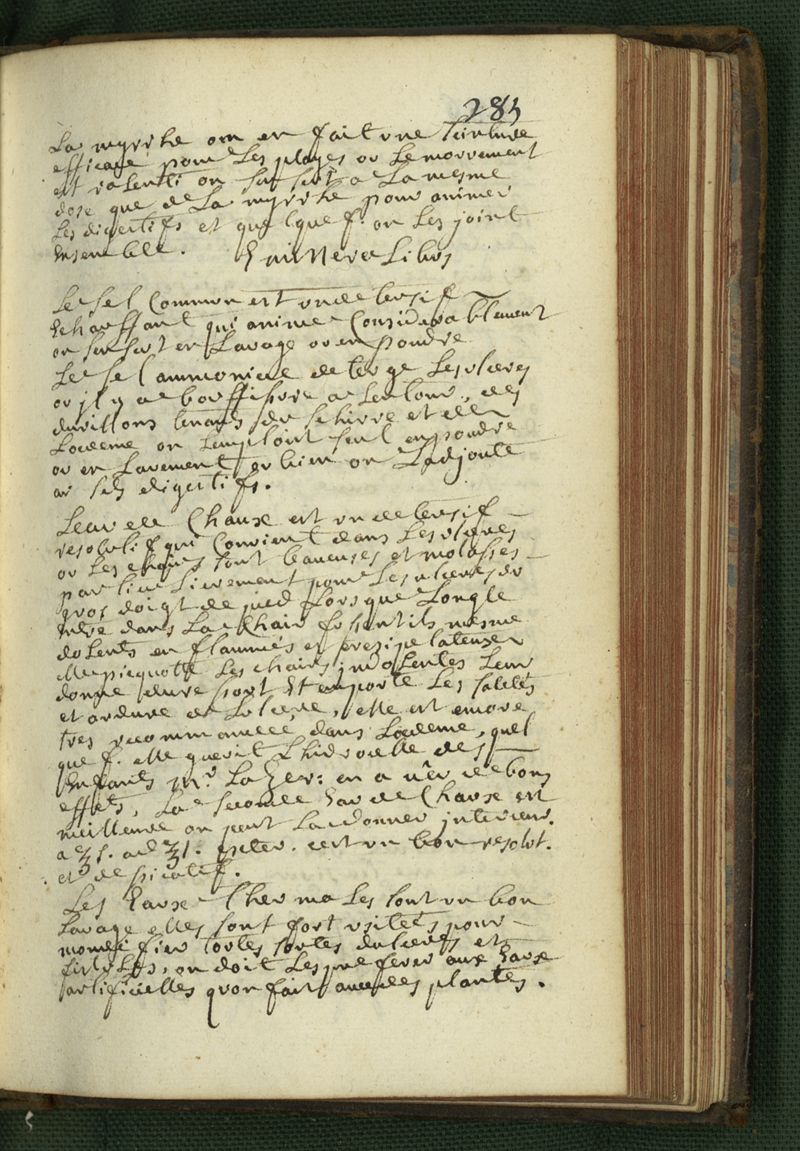 285
La myrrhe on en fait une teinture
efficace pour les playes ou le mouvement
est ralenti on sen sert a la mesme
dose que de la myrrhe pour animer
les digestifs et quelque f. on les joint
ensemble.
Le sel commun est un detersif
echauffant qui anime considerablement
on sen sert en lavage ou en poudre
Le sel ammoniac deterge les ulceres
ou il y a bouffissure a lentour, des
durillons tenants du schirre et de
loedeme on lemploit seul en poudre
ou en lavement ou bien on ladjoute
a ses digestifs.
Leau de chaux est un detersif
resolutif qui convient dans les ulceres
ou les chairs sont baveuses et molasses
particulierement pour les ulceres du
gros doigt de pied lorsque longle
entre dans la chair fussent ils mesme
dolents enflammés et erezipelateuse
elle picquotte les chairs indolentes leur
donne du ressort et emporte les saletés
et ordure de lulcere, elle est encore
tres recommandée dans loedeme, quel
que f. elle guerit lhidrocelle des
enfants Mr. La en a veu de bons
effets, la seconde eau de chaux est
meilleure on peut la donner interieur.
a ʒ s. ad ʒ i. exter. cest un bon resolut.
et desicatif.
Les eaux thermales sont un bon
lavage elles sont fort usitées pour
mondifier toutes sortes dulceres et
on doit les preferer aux eaux
artificielles quon fait avec des plantes.